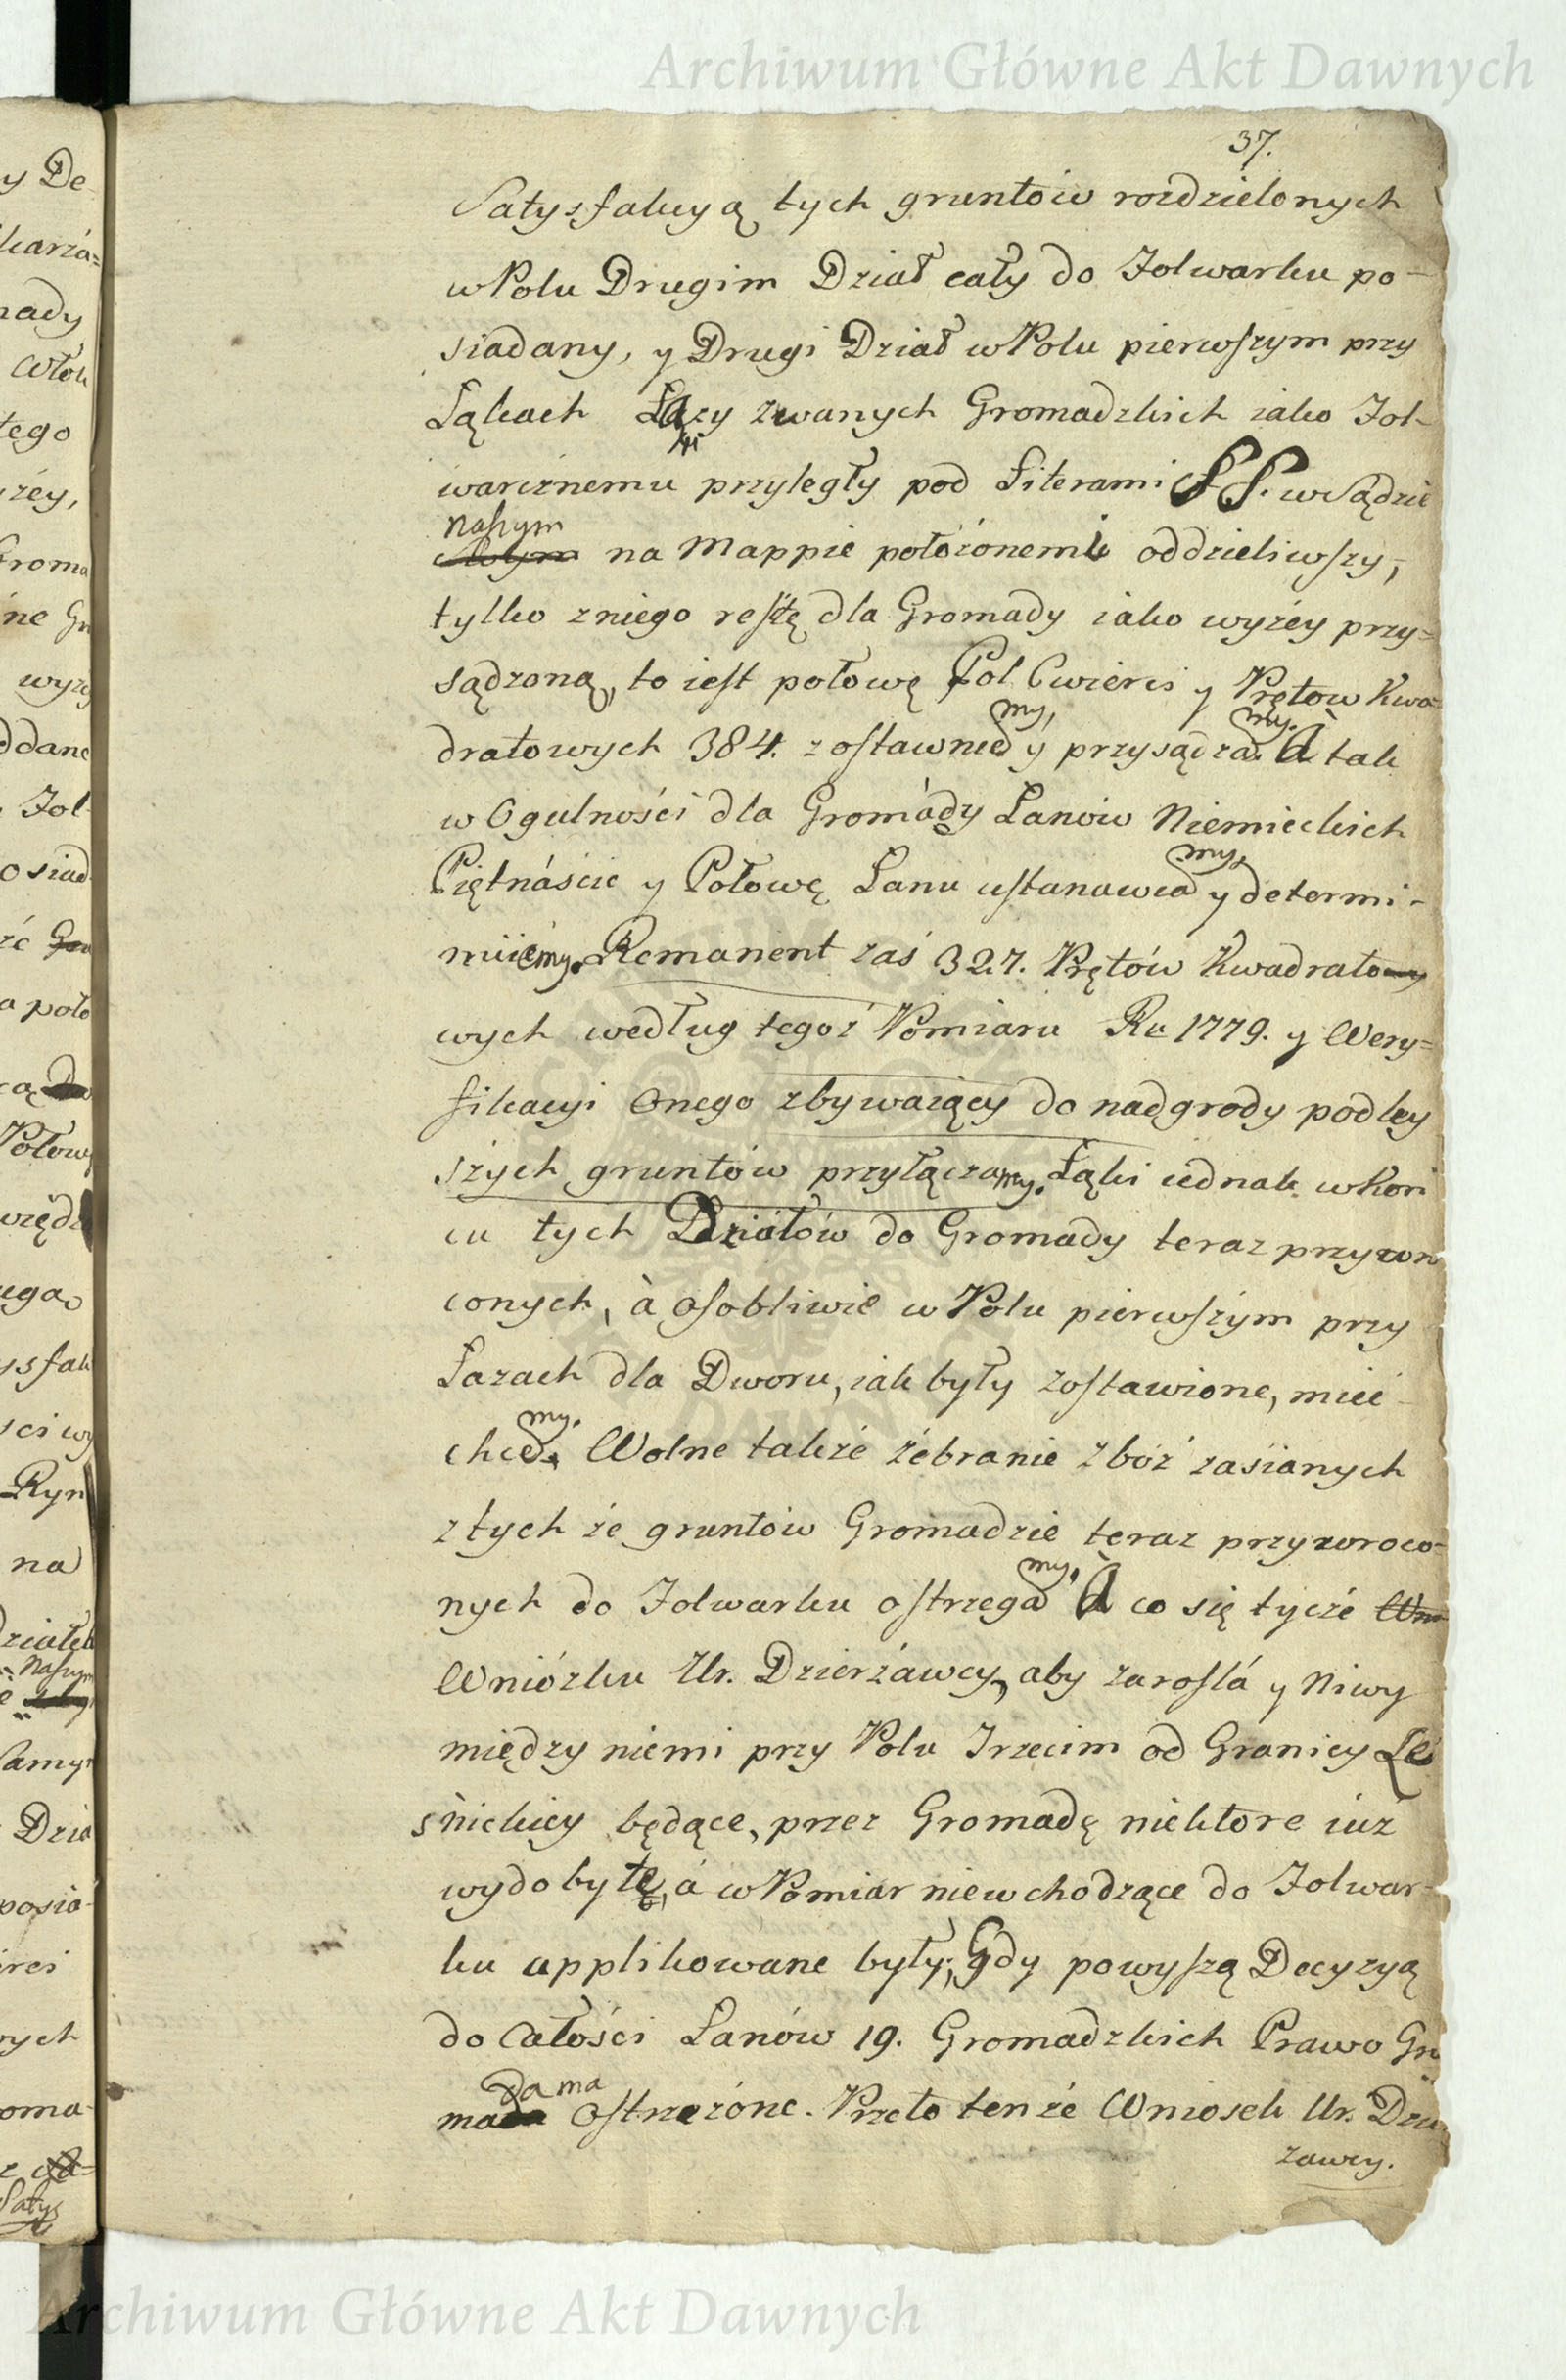 Archiwum Główne Akt Dawnych
37.
Satysfakcyą tych gruntów rozdzielonych
w Polu Drugim Dział cały do Folwarku po-
siadany, y Drugi Dział w Polu pierwszym przy
Łąkach Łazy zwanych Gromadzkich iako Fol-
warcznemu przyległy pod Literami SS. w Sądzie
naszym
na Mappie położonemi oddzieliwszy,
tylko z niego resztę dla Gromady iako wyżey przy=
sądzoną, to iest połowę Pol Cwierci y Prętow Kwa
my, my.
dratowych 384. zostawuie y przysądza. A tak
w Ogulności dla Gromady Łanow Niemieckich
my,
Piętnáście y Połowę Łanu ustanawia y determi-
nuiemy. Remanent zaś 327. Prętów Kwadrato
wych według tegoż Pomiaru Ru 1779. y Wery=
fikacyi Onego zbywaiący do nadgrody podley
szych gruntów przyłączamy. Łąki iednak w Koń
cu tych Działów do Gromady teraz przywro
conych, à osobliwie w Polu pierwszym przy
Łazach dla Dworu, iak były zostawione, mieć
my.
chce. Wolne także żebranie zboż zasianych
z tych że gruntów Gromadzie teraz przywroco=
my,
nych do Folwarku ostrzega A co się tycże
Wniózku Ur. Dzierżawcy, aby zaroslá y Niwy
między niemi przy Polu Trzecim od Granicy Le
śnickiey będące, przez Gromadę niektore iuż
wydobyte, á w Pomiar niewchodzące do Folwar-
ku applikowane były; Gdy powyszą Decyzyą
do Całości Łanów 19. Gromadzkich Prawo Gro
da ma
ma ostrzeżone. Przeto tenże Wniosek Ur. Dzier
zawcy.
Archiwum Główne Akt Dawnych